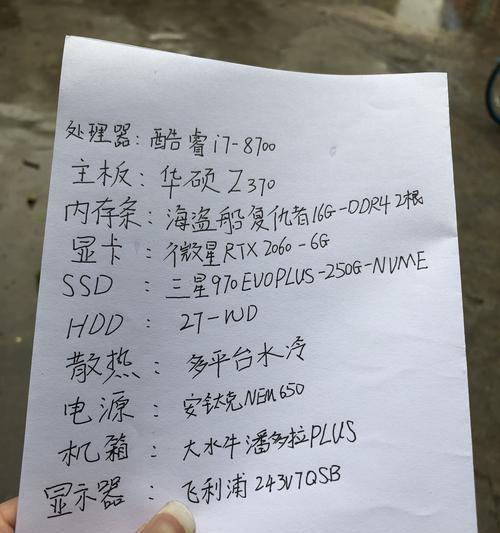 处理器：酷睿i7-8700
主板：华硕Z370
内存条：海盗船复仇者16G-DDR4 2根
显卡：微星RTX 2060-6G
SSD：三星970EVOPLUS-250G-NVME
HDD：2T-WD
散热：多平台水冷
电源：安钛克NEM650
机箱：大水牛潘多拉PLUS
显示器：飞利浦243V7QSB